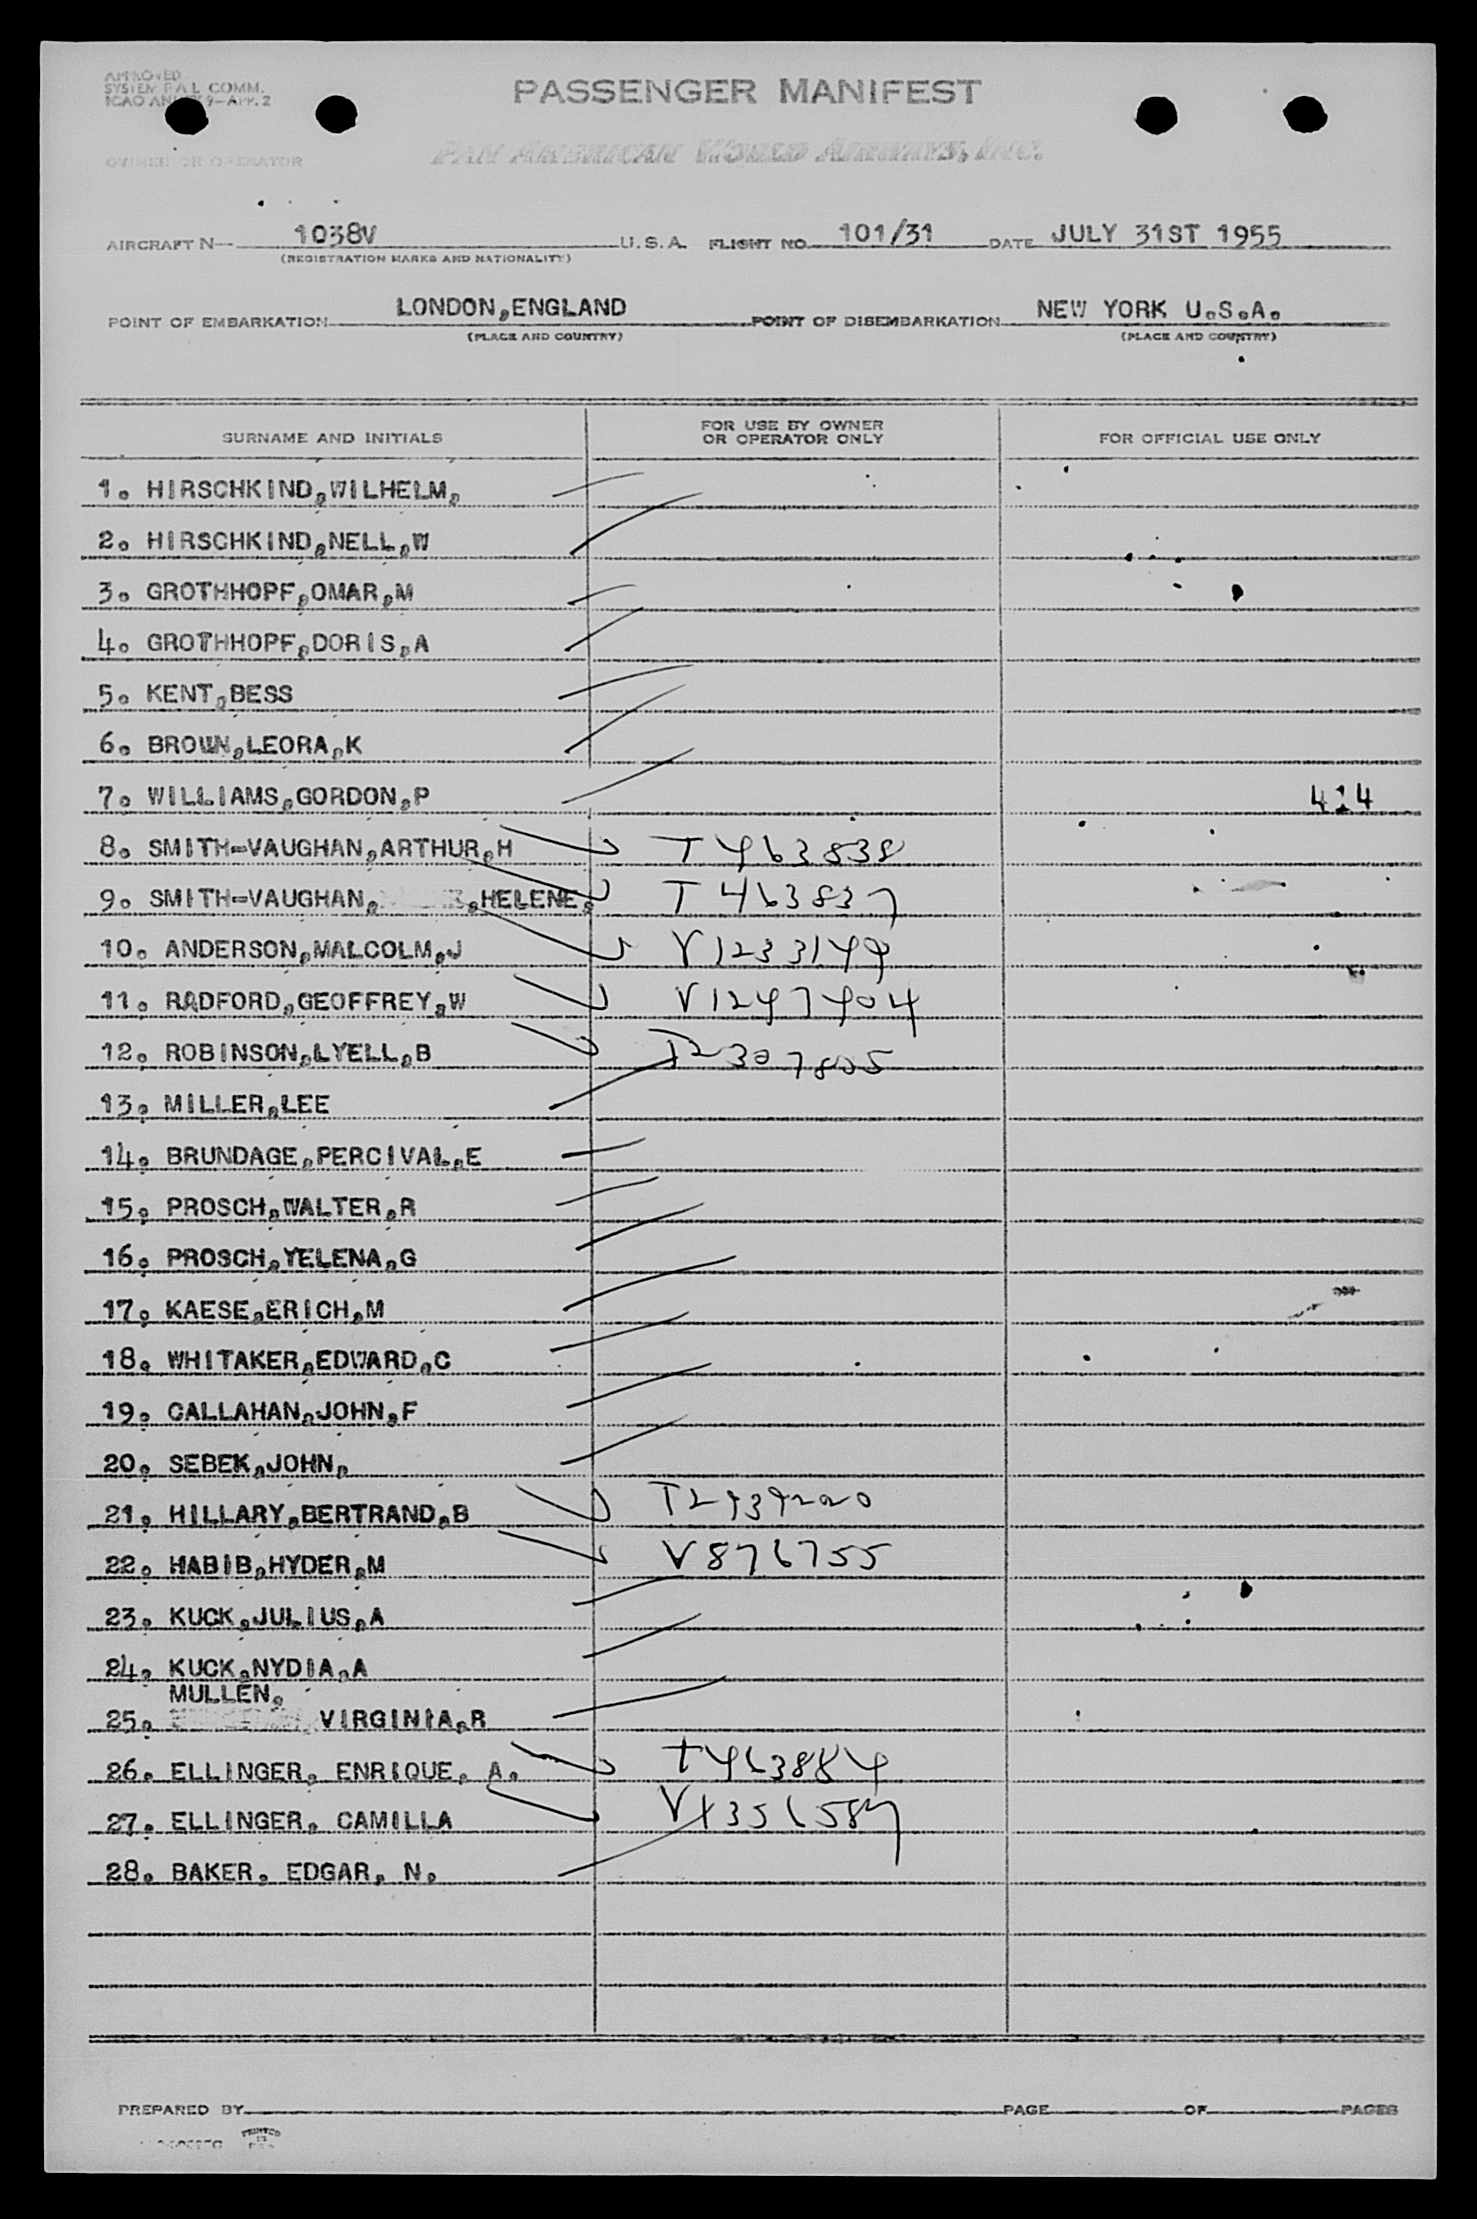 APPROVED
SYSTEM P.A.L COMM.
ICAO ANNEX 9-APP. 2
PASSENGER MANIFEST
OWNER OR OPERATOR PAN AMERICAN WORLD AIRWAYS, INC.
AIRCRAFT N- 1038V U.S.A. FLIGHT NO. 101/31 DATE JULY 31ST 1955
(REGISTRATION MARKS AND NATIONALITY)
POINT OF EMBARKATION LONDON,ENGLAND POINT OF DISEMBARKATION NEW YORK U.S.A.
(PLACE AND COUNTRY) (PLACE AND COUNTRY)
SURNAME AND INITIALS FOR USE BY OWNER OR OPERATOR ONLY FOR OFFICIAL USE ONLY
1. HIRSCHKIND,WILHELM,
2. HIRSCHKIND,NELL,W
3. GROTHHOPF,OMAR,M
4. GROTHHOPF,DORIS,A
5. KENT,BESS
6. BROWN,LEORA,K
7. WILLIAMS,GORDON,P 414
8. SMITH-VAUGHAN,ARTHUR,H T463838
9. SMITH-VAUGHAN, ,HELENE, T463837
10. ANDERSON,MALCOLM,J V1233149
11. RADFORD,GEOFFREY,W V1247404
12. ROBINSON,LYELL,B
13. MILLER,LEE
14. BRUNDAGE,PERCIVAL,E
15. PROSCH,WALTER,R
16. PROSCH,YELENA,G
17. KAESE,ERICH,M
18. WHITAKER,EDWARD,C
19. CALLAHAN,JOHN,F
20. SEBEK,JOHN,
21. HILLARY,BERTRAND,B
22. HABIB,HYDER,M V876755
23. KUCK,JULIUS,A
24. KUCK,NYDIA,A
MULLEN,
25. VIRGINIA,R
26. ELLINGER, ENRIQUE, A. T463884
27. ELLINGER, CAMILLA
28. BAKER, EDGAR, N.
PREPARED BY PAGE OF PAGES
PRINTED
IN